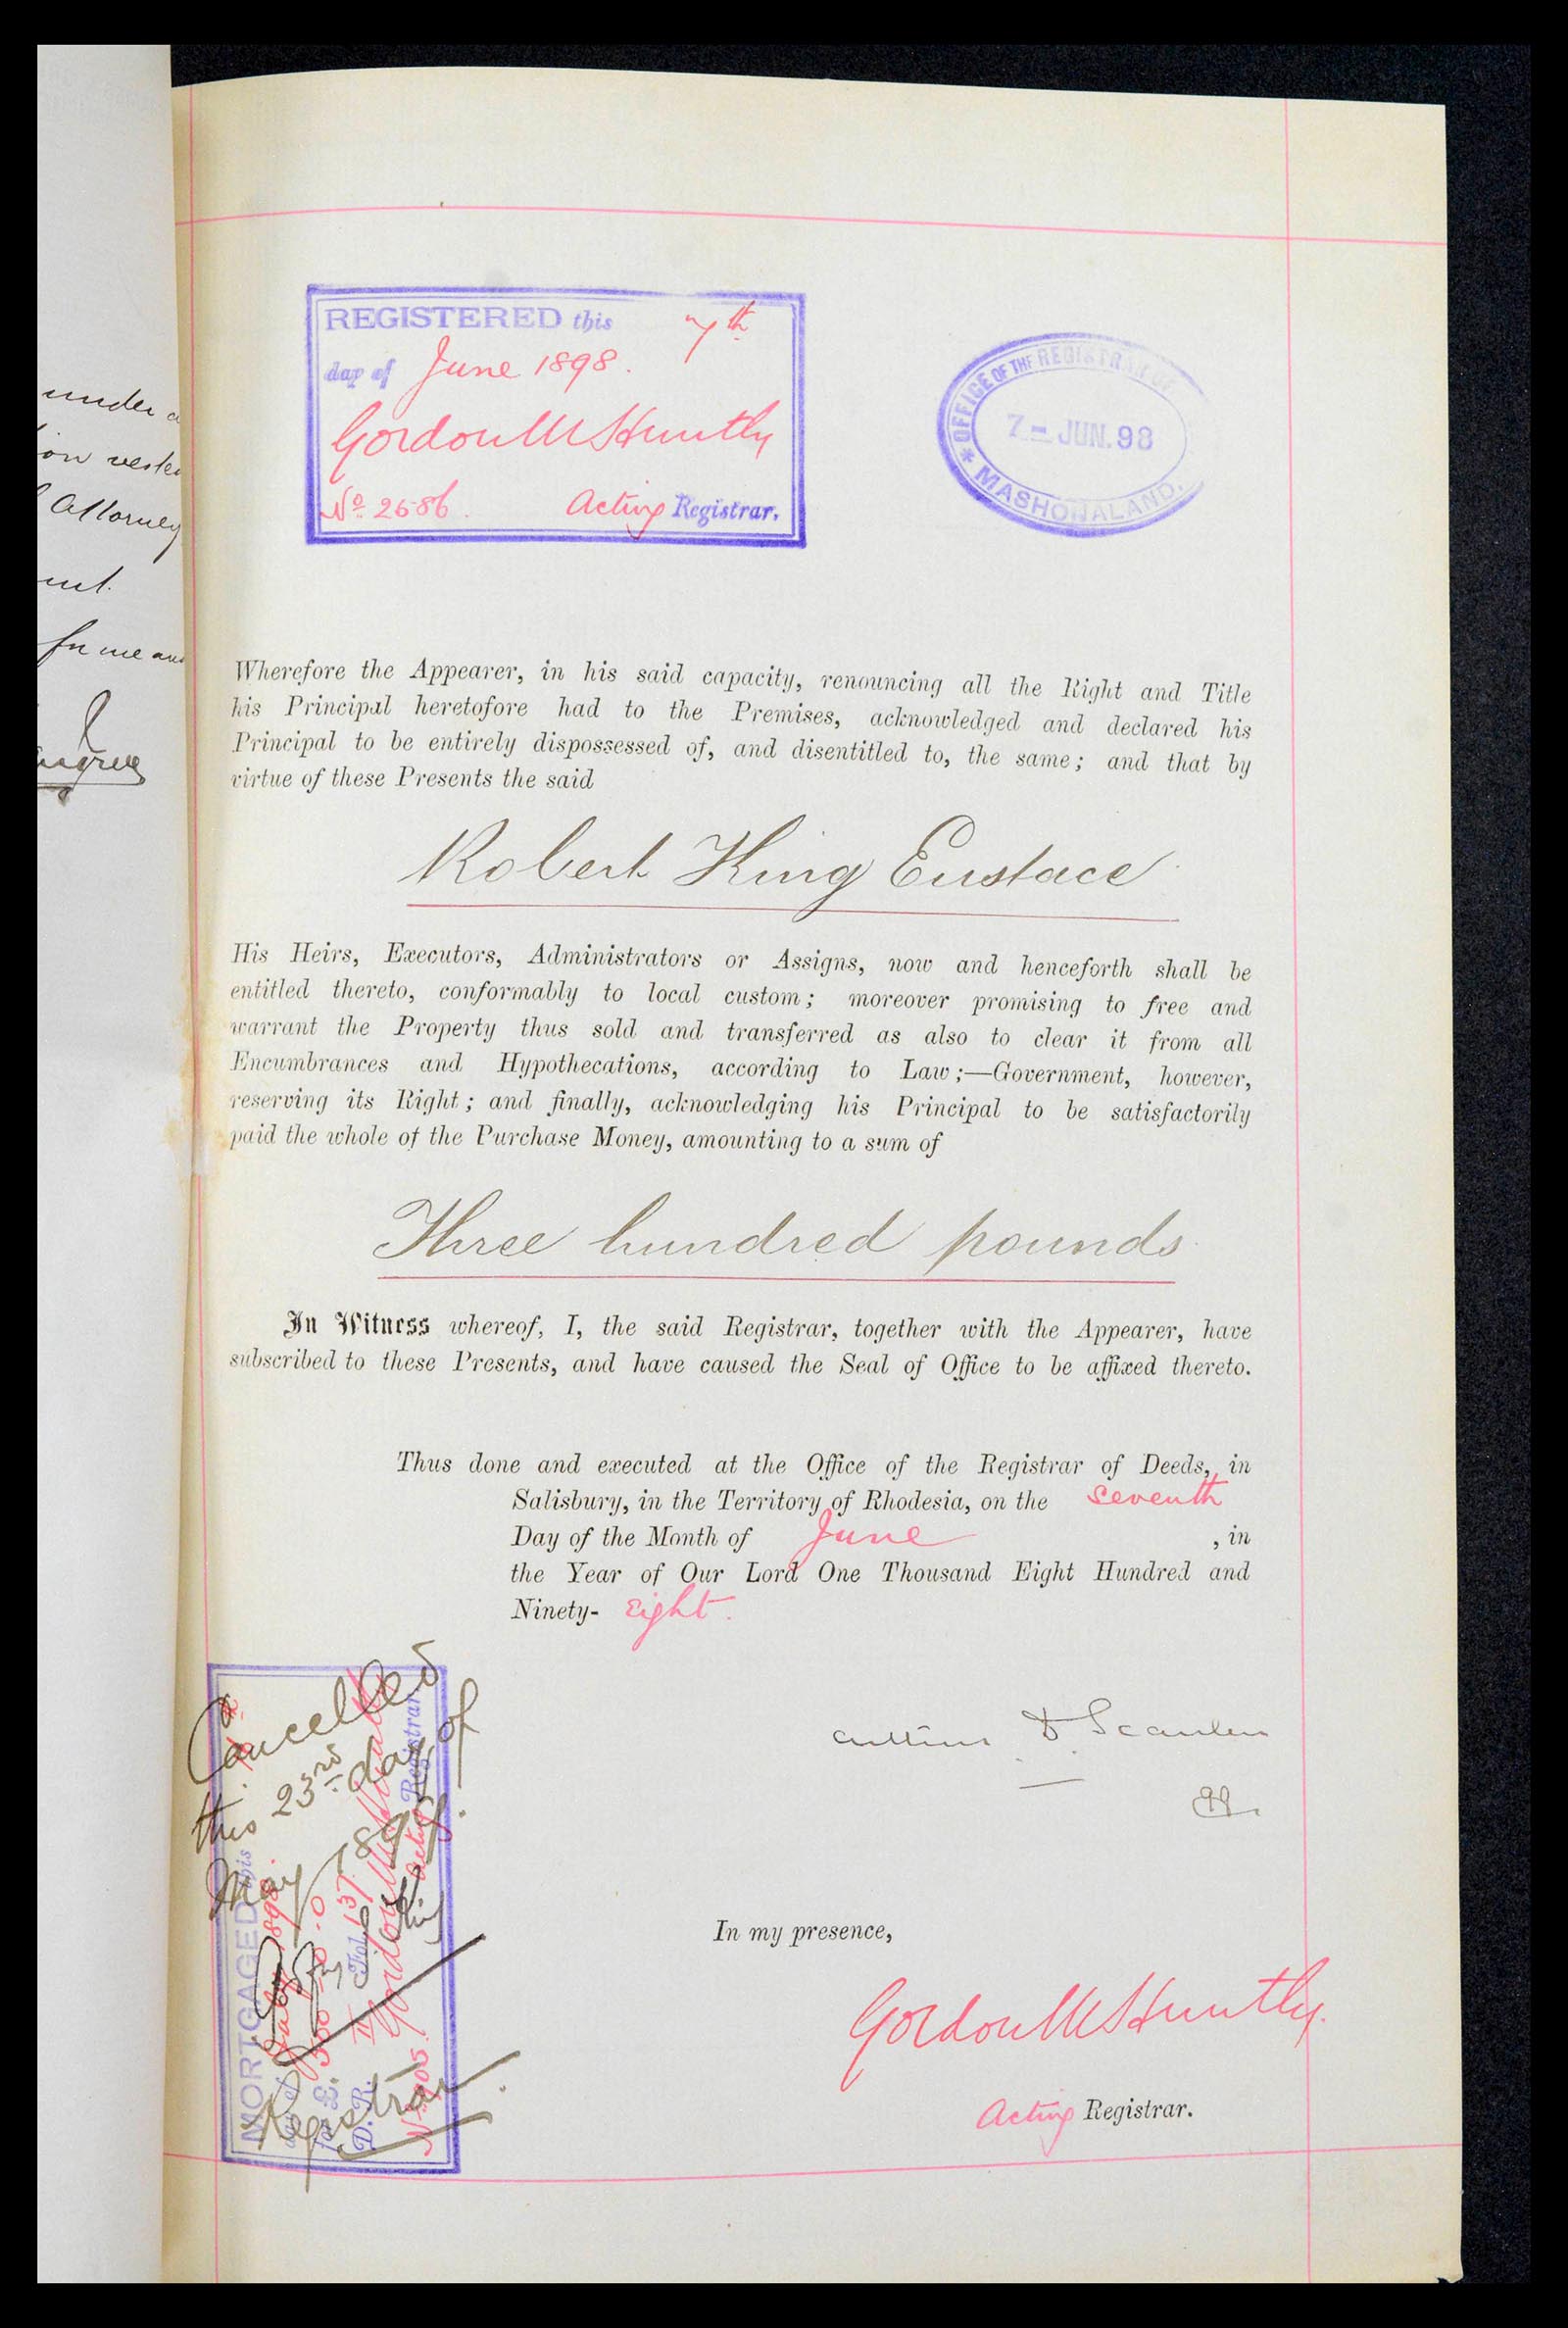 under
Attorney
for me and
REGISTERED this 7th
day of June 1898.
Gordon M Huntly
No 2686. Acting Registrar.
* OFFICE OF THE REGISTRAR OF
7 - JUN. 98
MASHONALAND.
Wherefore the Appearer, in his said capacity, renouncing all the Right and Title
his Principal heretofore had to the Premises, acknowledged and declared his
Principal to be entirely dispossessed of, and disentitled to, the same; and that by
virtue of these Presents the said
Robert King Eustace
His Heirs, Executors, Administrators or Assigns, now and henceforth shall be
entitled thereto, conformably to local custom; moreover promising to free and
warrant the Property thus sold and transferred as also to clear it from all
Encumbrances and Hypothecations, according to Law;—Government, however,
reserving its Right; and finally, acknowledging his Principal to be satisfactorily
paid the whole of the Purchase Money, amounting to a sum of
Three hundred pounds
In Witness whereof, I, the said Registrar, together with the Appearer, have
subscribed to these Presents, and have caused the Seal of Office to be affixed thereto.
Thus done and executed at the Office of the Registrar of Deeds, in
Salisbury, in the Territory of Rhodesia, on the seventh
Day of the Month of June , in
the Year of Our Lord One Thousand Eight Hundred and
Ninety- Eight.
Scanlen
In my presence,
Gordon M Huntly.
Acting Registrar.
Cancelled
this 23rd day of
May
Registrar
MORTGAGED this
D. R. Fol. 137
Gordon M Huntly
Acting Registrar